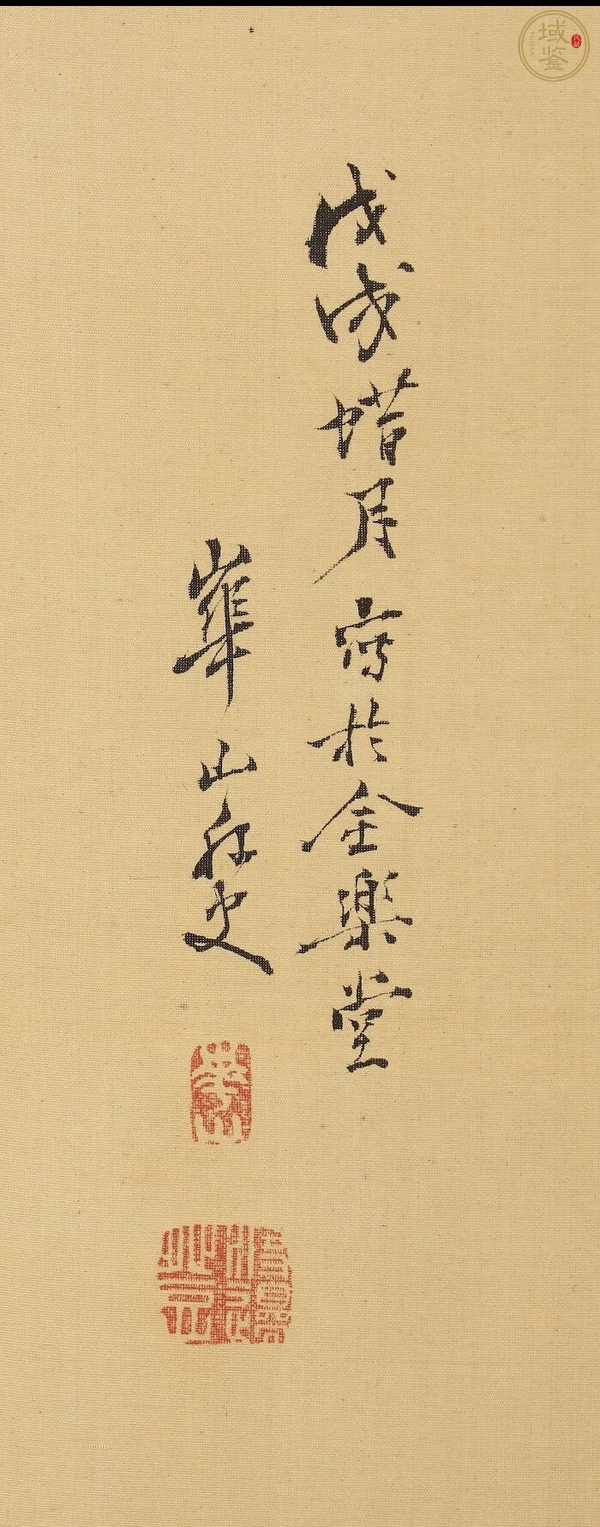 戊戌蜡月寫於全樂堂
崋山外史
域鉴